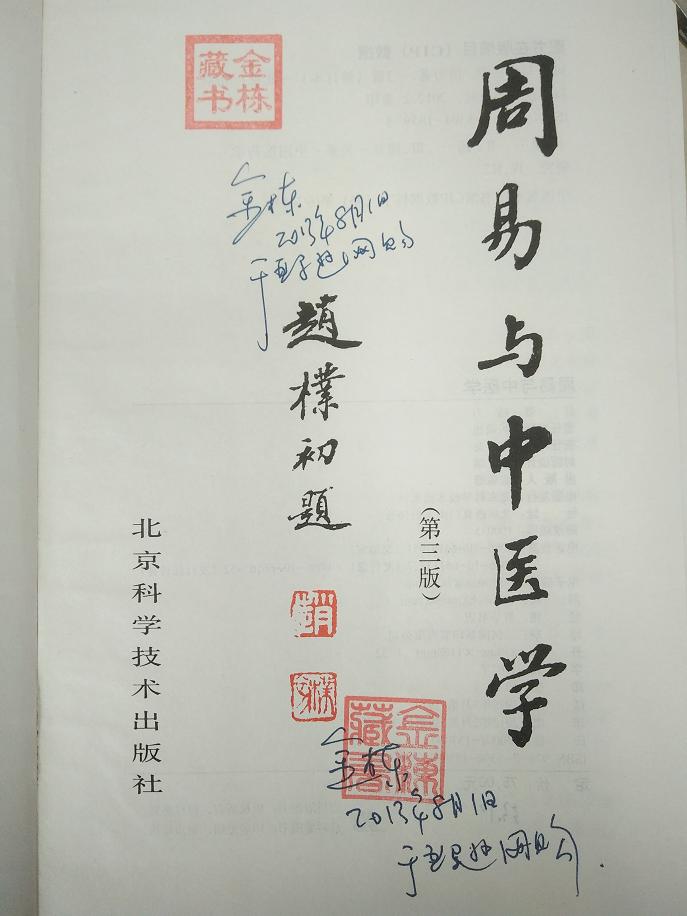 周易与中医学
（第三版）
趙樸初題
趙
樸初
北京科学技术出版社
金栋
藏书
金栋
2013年8月1日
于
网购
金棟
藏書
金栋
2013年8月1日
于
网购